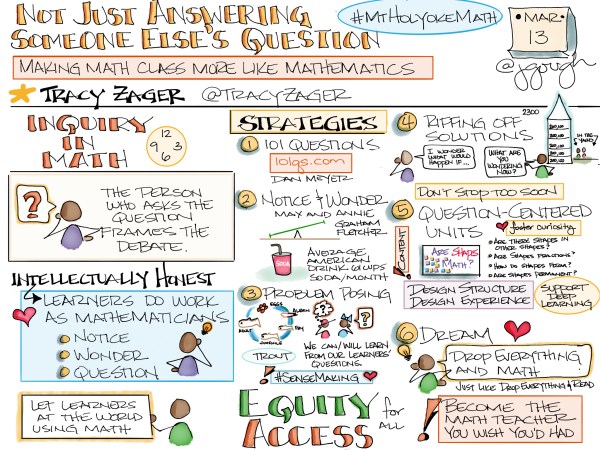 NOT JUST ANSWERING
SOMEONE ELSE'S QUESTION
MAKING MATH CLASS MORE LIKE MATHEMATICS
#MTHOLYOKEMATH
MAR
13
@jgough
TRACY ZAGER @TRACYZAGER
INQUIRY
IN
MATH
12
9 3
6
?
THE PERSON
WHO ASKS THE
QUESTION
FRAMES THE
DEBATE.
INTELLECTUALLY HONEST
LEARNERS DO WORK
AS MATHEMATICIANS
NOTICE
WONDER
QUESTION
LET LEARNERS
AT THE WORLD
USING MATH
STRATEGIES
1 101 QUESTIONS
101qs.com
DAN MEYER
2 NOTICE & WONDER
MAX AND ANNIE
GRAHAM
FLETCHER
SODA
AVERAGE
AMERICAN
DRINK 61 CUPS
SODA/MONTH
3 PROBLEM POSING
EGGS
ALEVIN
FRY
ADULT
TROUT
? ?
WE CAN/WILL LEARN
FROM OUR LEARNERS'
QUESTIONS.
! #SENSEMAKING
EQUITY for
ACCESS ALL
4 RIFFING OFF
SOLUTIONS
2300
I WONDER
WHAT WOULD
HAPPEN IF...
WHAT ARE
YOU
WONDERING
NOW?
IN THE
DON'T STOP TOO SOON
5 QUESTION-CENTERED
UNITS
foster curiosity
CONTENT
ARE SHAPES
MATH?
ARE THERE SHAPES IN
OTHER SHAPES?
ARE SHAPES FRACTIONS?
HOW DO SHAPES FORM?
ARE SHAPES PERMANENT?
DESIGN STRUCTURE
DESIGN EXPERIENCE
SUPPORT
DEEP
LEARNING
6 DREAM
DROP EVERYTHING
AND MATH
JUST LIKE DROP EVERYTHING & READ
! BECOME THE
MATH TEACHER
YOU WISH YOU'D HAD